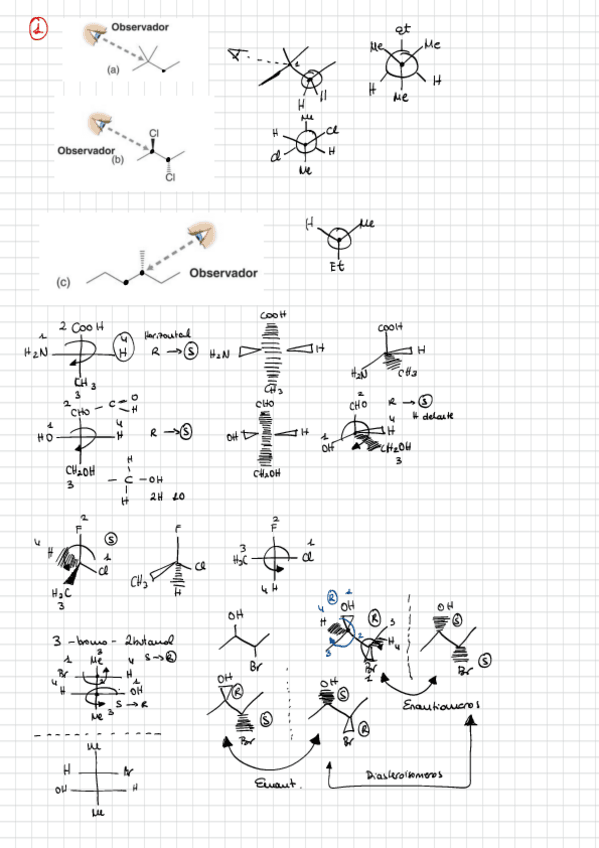 1
Observador
(a)
1
H H
et
Me Me
H H
Me
Observador
(b)
Cl
Cl
Me
H Cl
Cl H
Me
Observador
(c)
H Me
Et
2 COOH
1 H₂N H 4
CH₃
3
Horizontal
R → S
COOH
H₂N H
CH₃
COOH
H
H₂N CH₃
2
CHO - C = O
H
1 HO H 4
CH₂OH
3
R → S
H
- C - OH
H
2H 1O
CHO
OH H
CH₂OH
2
CHO
4
H
1
OH CH₂OH
3
R → S
H delante
2
F
4 H
S
1
Cl
H₃C
3
F
Cl
CH₃ H
2
F
3
H₃C Cl 1
4 H
3-bromo-2butanol
3
Me
1 Br H 4
S → R
4 H OH 1
2
Me 3
S → R
Me
H Br
OH H
Me
OH
Br
R 2
4 OH
H
R 3
3 2
H 4
Br
1
OH
Br S
Enantiomeros
OH R
S
Br
OH S
Br R
Enant.
Diasteroisomeros